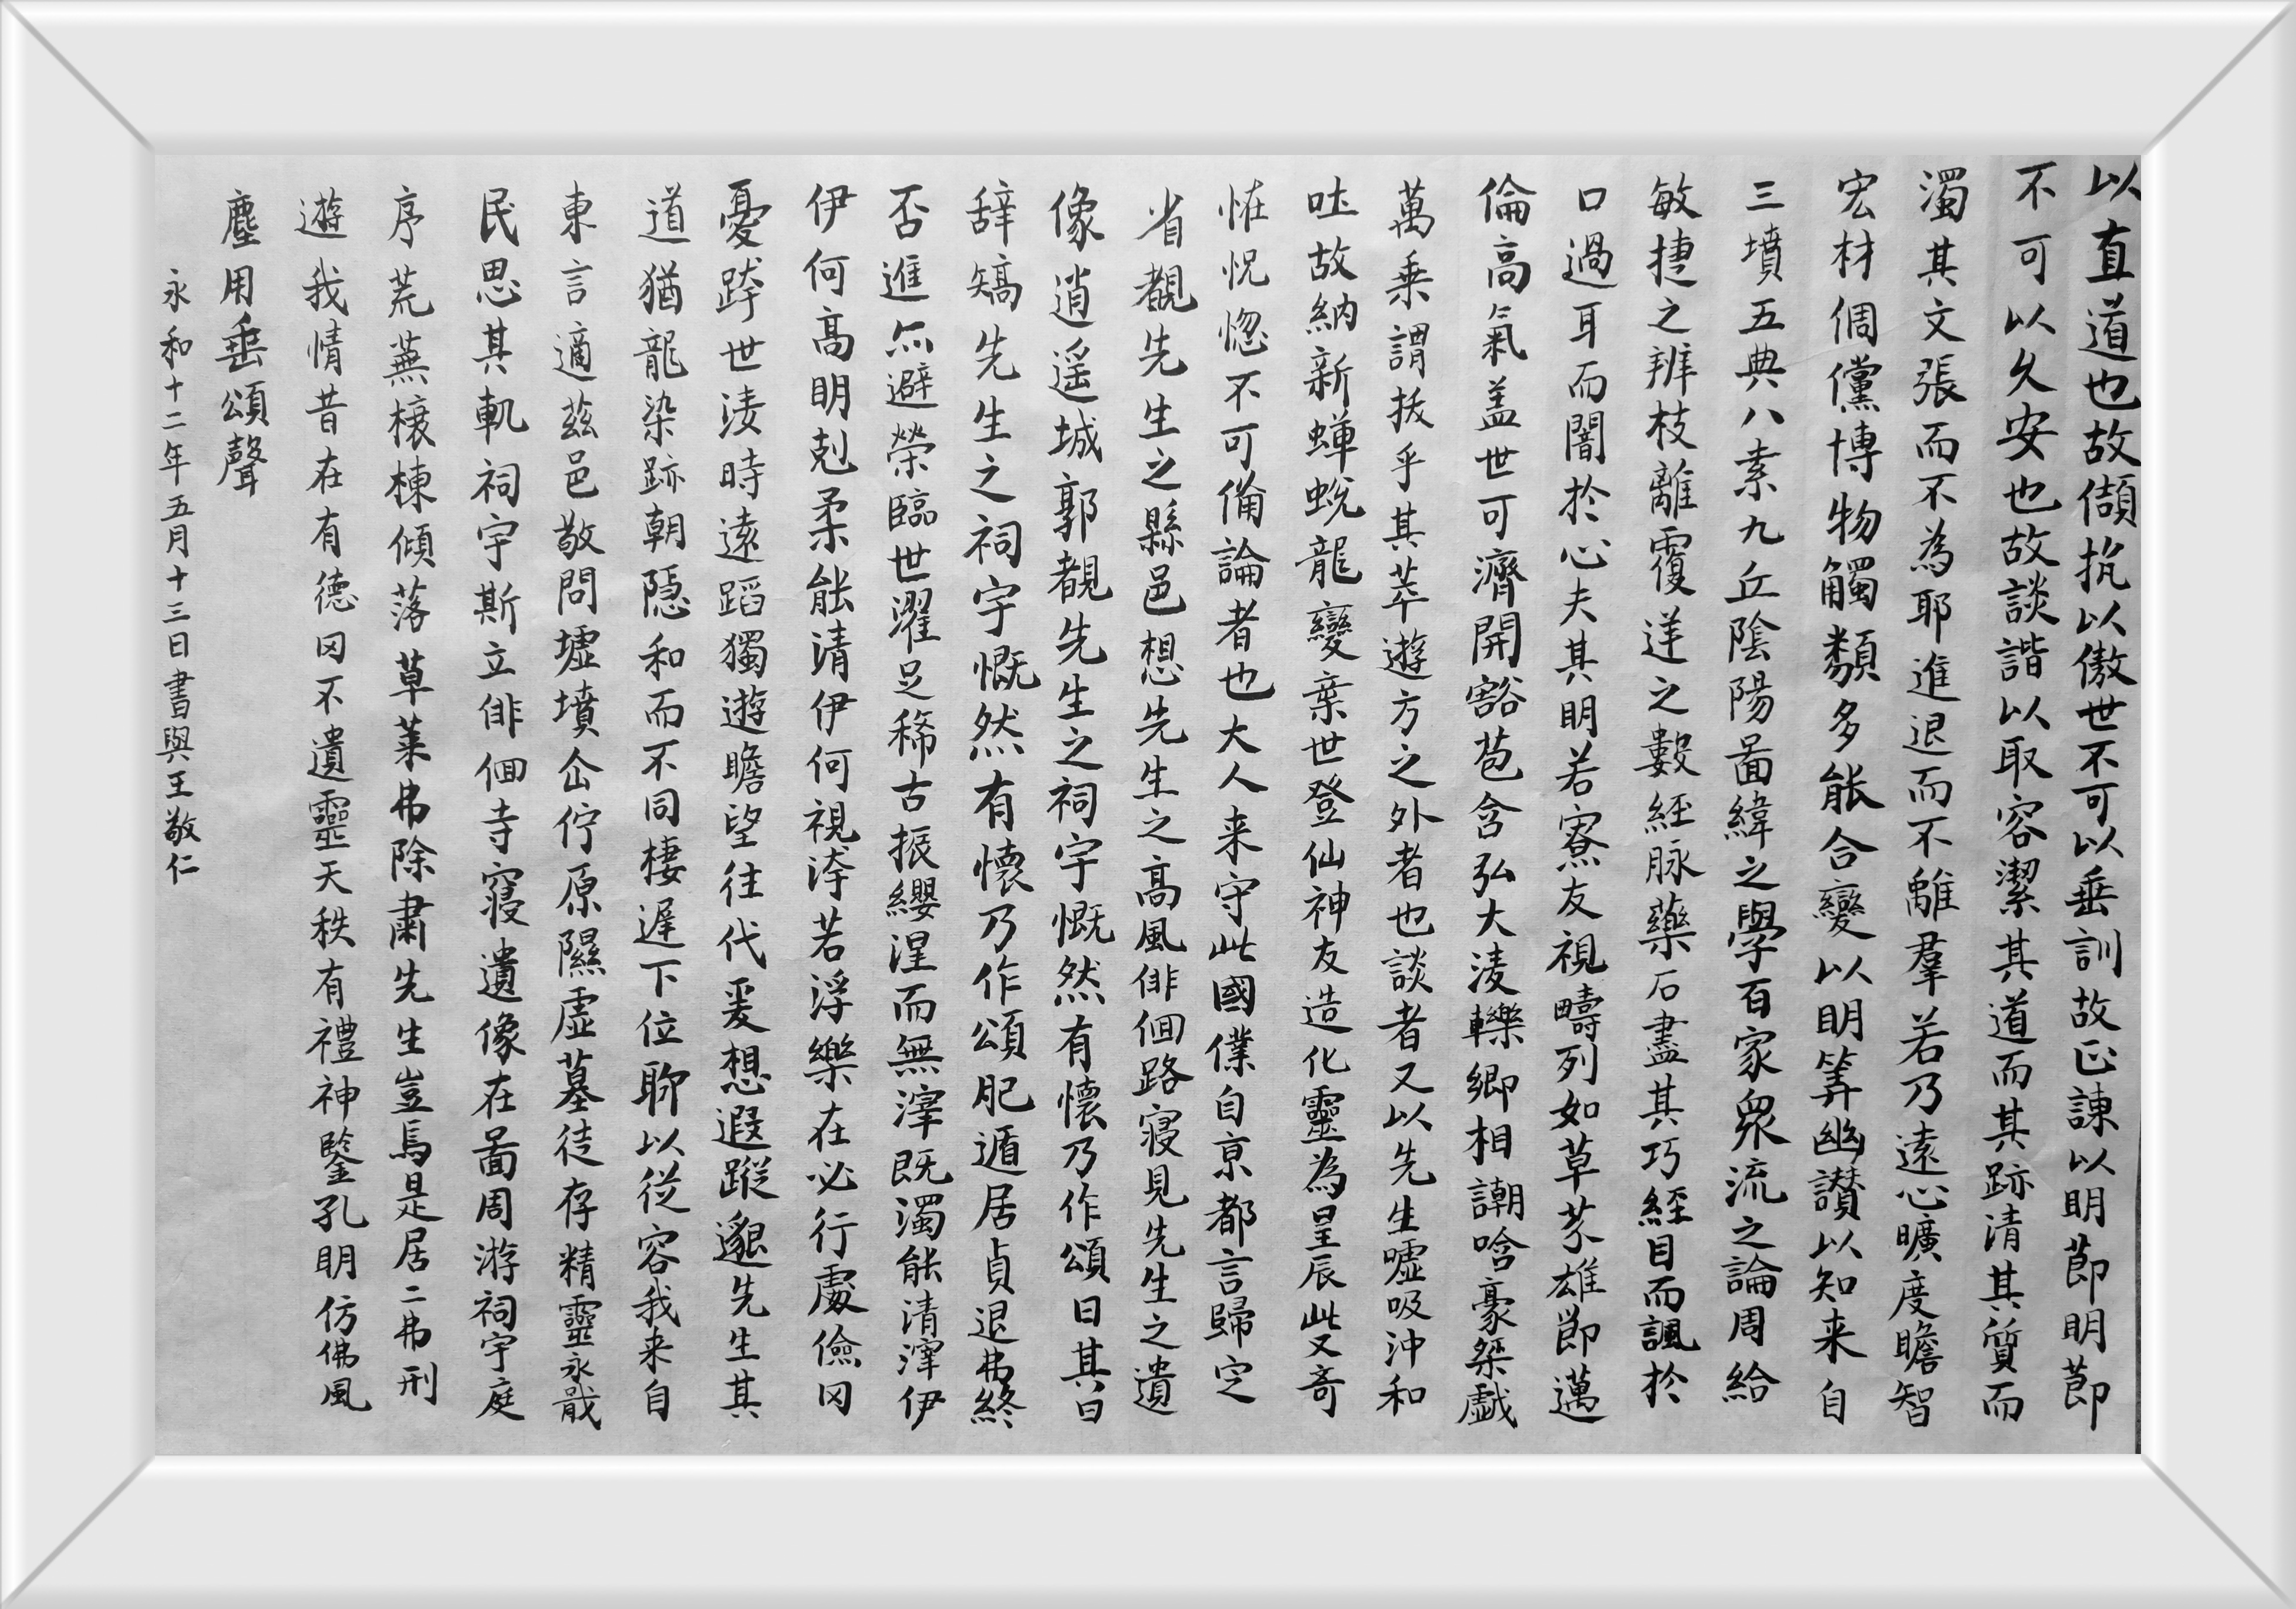 以直道也故頡抗以傲世不可以垂訓故正諫以明莭明莭
不可以久安也故談諧以取容潔其道而其跡清其質而
濁其文張而不為耶進退而不離羣若乃遠心曠度瞻智
宏材倜儻博物觸類多能合變以明筭幽讃以知来自
三墳五典八素九丘陰陽啚緯之學百家衆流之論周給
敏捷之辨枝離覆逆之數経脉藥石盡其巧經目而諷於
口過耳而闇於心夫其明若寮友視疇列如草芥雄節邁
倫高氣盖世可濟開豁苞含弘大淩轢卿相謿哈豪桀戯
萬乗謂拔乎其萃遊方之外者也談者又以先生噓吸沖和
吐故納新蟬蛻龍變棄世登仙神友造化靈為星辰此又奇
怪怳惚不可備論者也大人来守此國僕自京都言歸定
省覩先生之縣邑想先生之高風徘徊路寑見先生之遺
像逍遥城郭覩先生之祠宇慨然有懷乃作頌曰其曰
辞矯先生之祠宇慨然有懷乃作頌肥遁居貞退弗終
否進亦避榮臨世濯足稀古振纓涅而無滓既濁能清滓伊
伊何高明剋柔能清伊何視洿若浮樂在必行處儉罔
憂跨世淩時遠蹈獨遊瞻望往代爰想遐蹤邈先生其
道猶龍染跡朝隐和而不同棲遲下位聊以従容我来自
東言適兹邑敬問墟墳企佇原隰虚墓徒存精靈永戢
民思其軌祠宇斯立徘徊寺寑遺像在啚周游祠宇庭
序荒蕪榱棟傾落草莱弗除肅先生豈焉是居二弗刑
遊我情昔在有德罔不遺靈天秩有禮神鑒孔明仿佛風
塵用垂頌聲
永和十二年五月十三日書與王敬仁